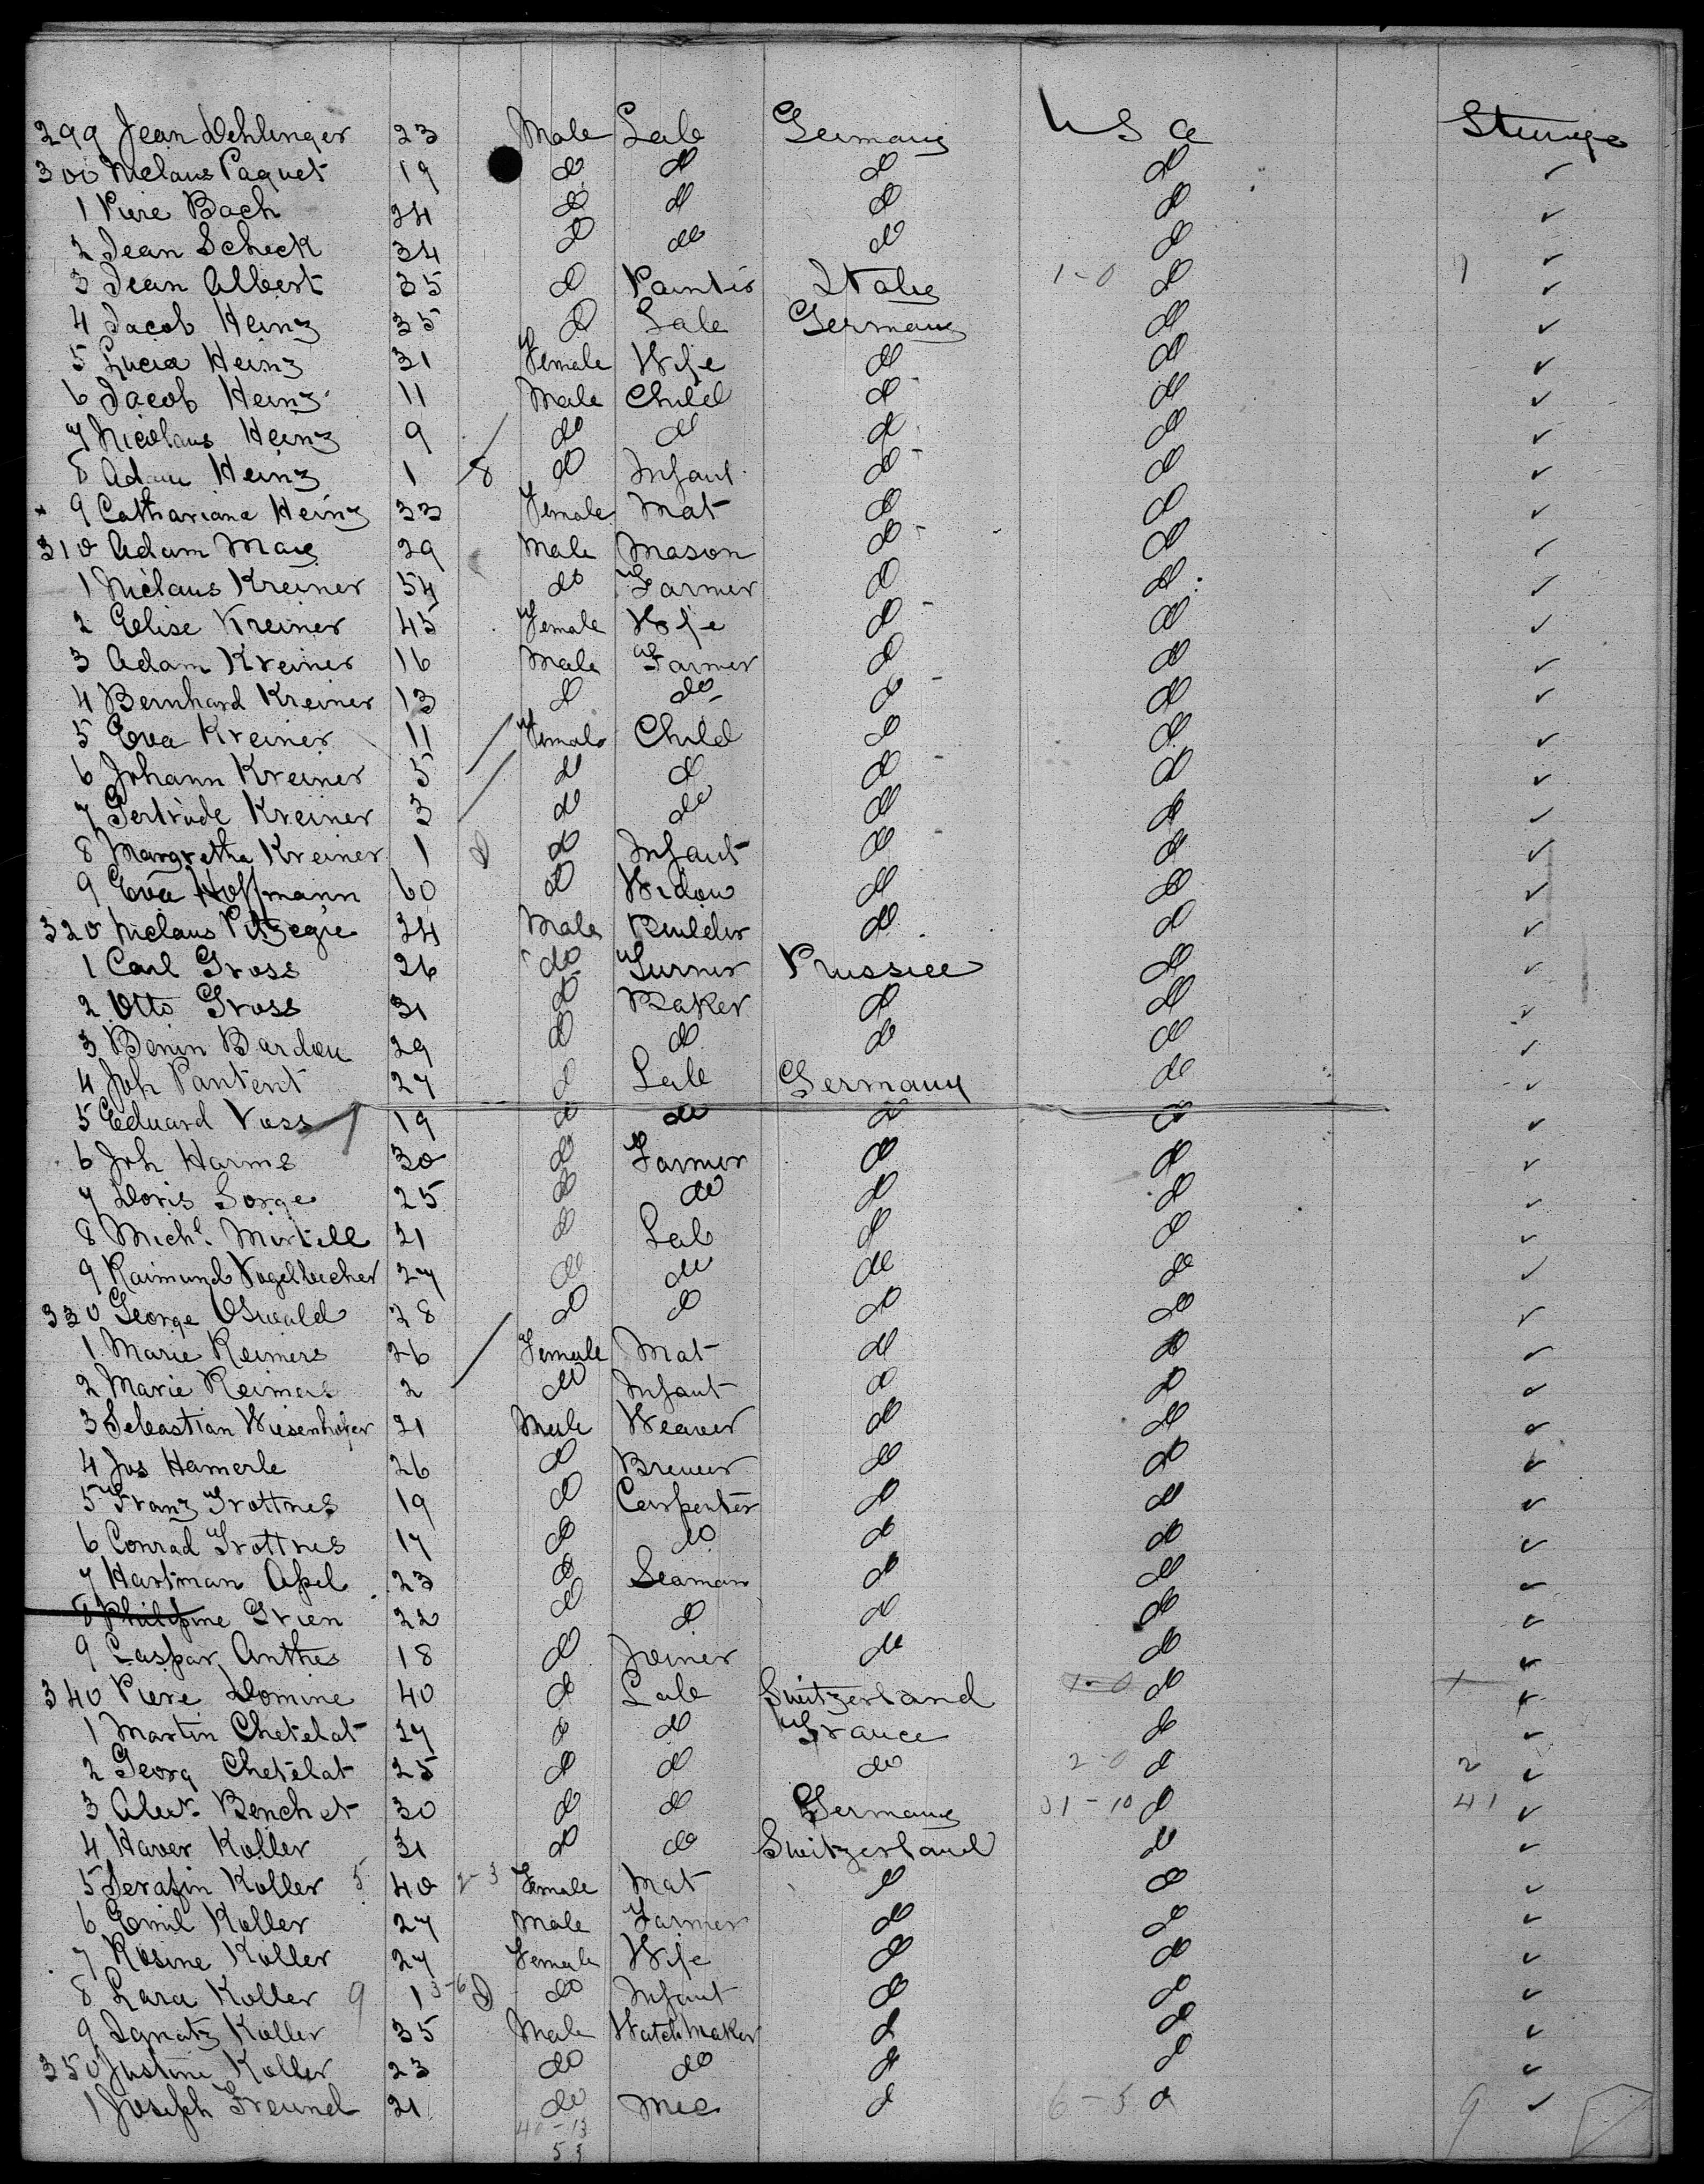 299 Jean Dehlinger 23 Male Lab Germany U S a Steerage
300 Niclaus Paquet 19 do do do do ✓
1 Piere Bach 24 do do do do ✓
2 Jean Scheck 34 do do do do ✓
3 Jean Albert 35 do Painter Italy 1-0 do 1 ✓
4 Jacob Heinz 35 do Lab Germany do ✓
5 Lucia Heinz 31 Female Wife do do ✓
6 Jacob Heinz 11 Male Child do do ✓
7 Nicolaus Heinz 9 do do do do ✓
8 Adam Heinz 1 8 do Infant do do ✓
9 Cathariana Heinz 33 Female Mat do do ✓
310 Adam May 29 Male Mason do do ✓
1 Niclaus Kreiner 54 do Farmer do do ✓
2 Elise Kreiner 45 Female Wife do do ✓
3 Adam Kreiner 16 Male Farmer do do ✓
4 Bernhard Kreiner 13 do do do do ✓
5 Eva Kreiner 11 Female Child do do ✓
6 Johann Kreiner 5 do do do do ✓
7 Gertrude Kreiner 3 do do do do ✓
8 Margretha Kreiner 1 do Infant do do ✓
9 Eva Hoffmann 60 do Widow do do ✓
320 Niclaus 34 Male Builder do do ✓
1 Carl Gross 26 do Turner Prussia do ✓
2 Otto Gross 31 do Baker do do ✓
3 Benin Bardou 29 do do do do ✓
4 Joh Pantent 27 do Lab Germany do ✓
5 Eduard Voss 19 do do do do ✓
6 Joh Harms 30 do Farmer do do ✓
7 Doris Sorge 25 do do do do ✓
8 Michl. Mirtell 21 do Lab do do ✓
9 Raimund Vogelbacher 27 do do do do ✓
330 George Oswald 28 do do do do ✓
1 Marie Reimers 26 Female Mat do do ✓
2 Marie Reimers 2 do Infant do do ✓
3 Sebastian Wiesenhofer 21 Male Weaver do do ✓
4 Jos Hamerle 26 do Brewer do do ✓
5 Franz Trottnes 19 do Carpenter do do ✓
6 Conrad Trottnes 17 do do do do ✓
7 Hartman Apel 23 do Seaman do do ✓
8 Philipine Grien 22 do do do do ✓
9 Caspar Anthes 18 do Joiner do do ✓
340 Piere Domine 40 do Lab Switzerland 1-0 do 1 ✓
1 Martin Chetelat 27 do do France do ✓
2 Georg Chetelat 25 do do do 2-0 do 2 ✓
3 Alex. Benchet 30 do do Germany 31-10 do 41 ✓
4 Xaver Koller 31 do do Switzerland do ✓
5 Serafin Koller 5 40 2-3 Female Mat do do ✓
6 Emil Koller 27 Male Farmer do do ✓
7 Rosine Koller 27 Female Wife do do ✓
8 Lara Koller 9 1 3-6 do Infant do do ✓
9 Ignatz Koller 35 Male Watchmaker do do ✓
350 Justine Koller 23 do do do do ✓
1 Joseph Freund 21 do Mec do 6-3 do 9 ✓
40-13
53